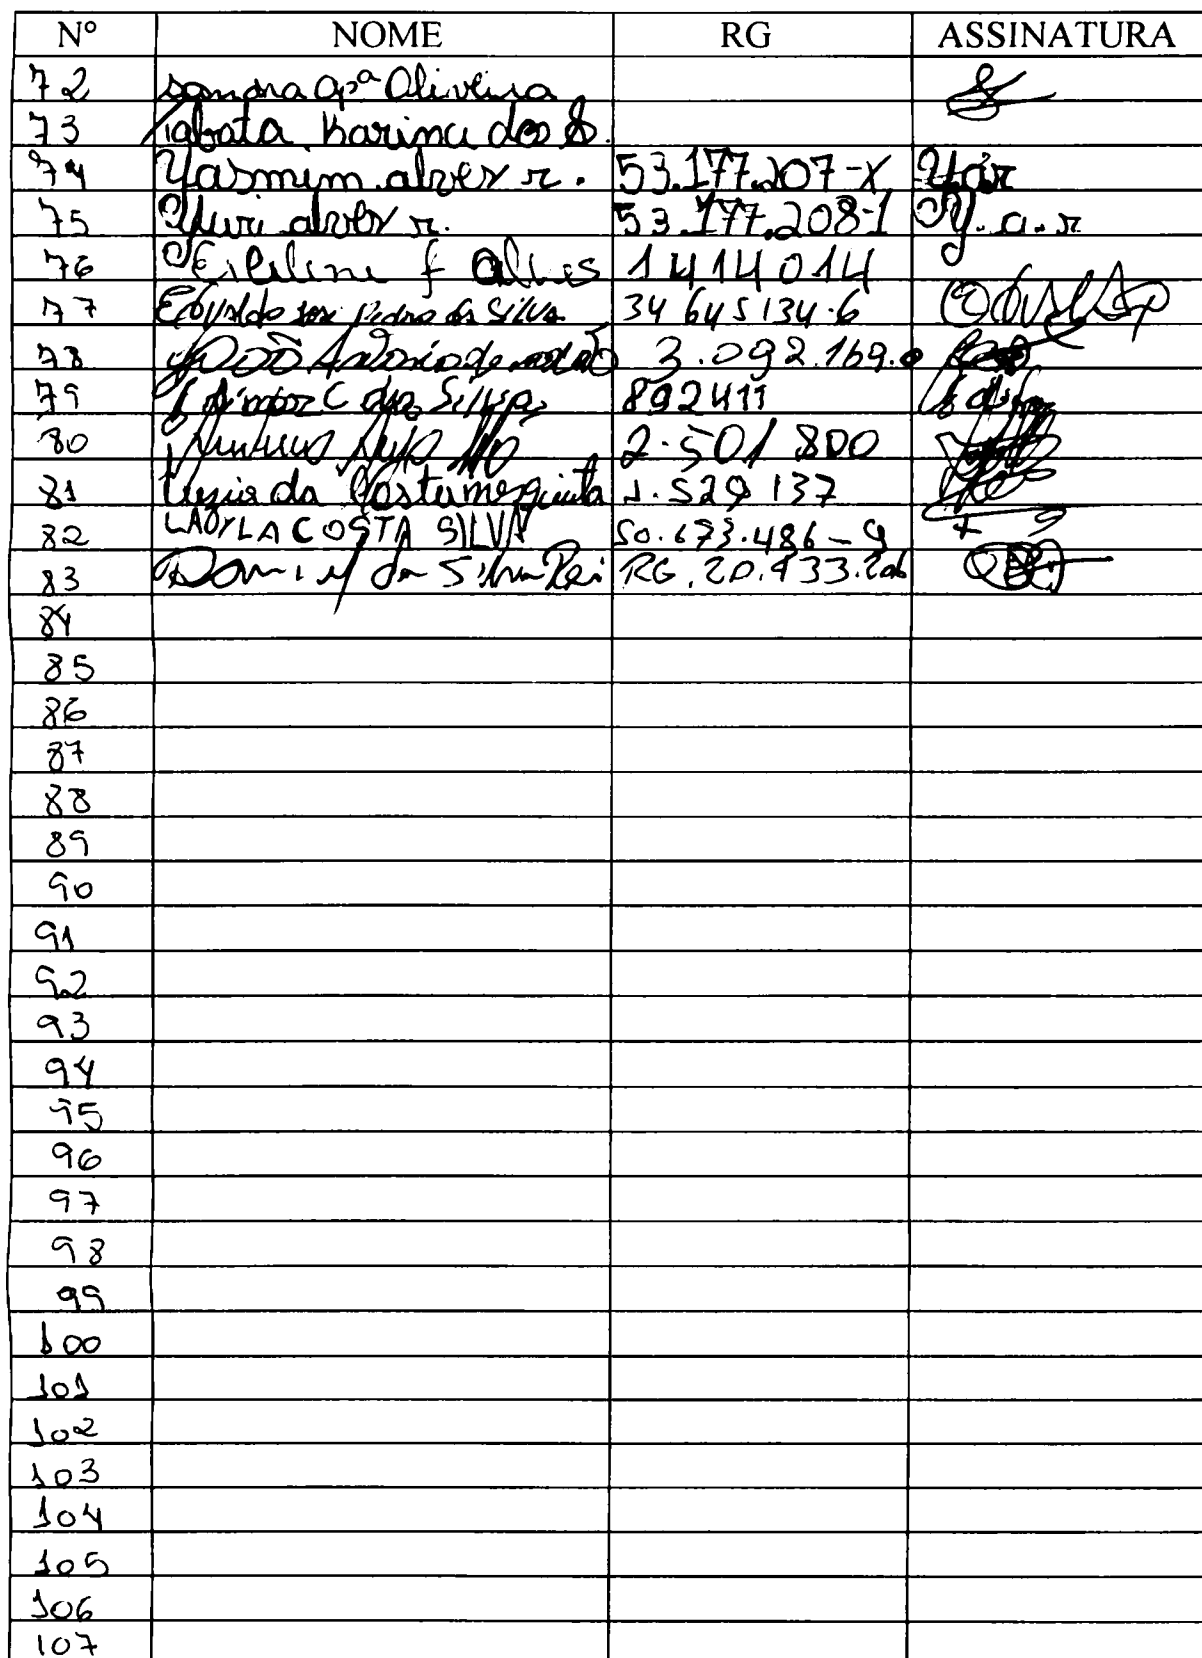 Nº NOME RG ASSINATURA
72 Sandra Apª Oliveira
73 Tabata Karina dos S.
74 Yasmim alves r. 53.177.207-X Yar
75 Yuri alves r. 53.177.208-1 Y.a.r
76 f Alves 1414014
77 Edvaldo Pedro da Silva 34 645134-6
78 João Antonio de 3.092.169.0
79 C da Silva 892411
80 2.501 800
81 Luzia da Costa mesquita 1.529 137
82 LADYLA COSTA SILVA 50.673.486-9
83 da Silva Rei RG.20.933.206
84
85
86
87
88
89
90
91
92
93
94
95
96
97
98
99
100
101
102
103
104
105
106
107